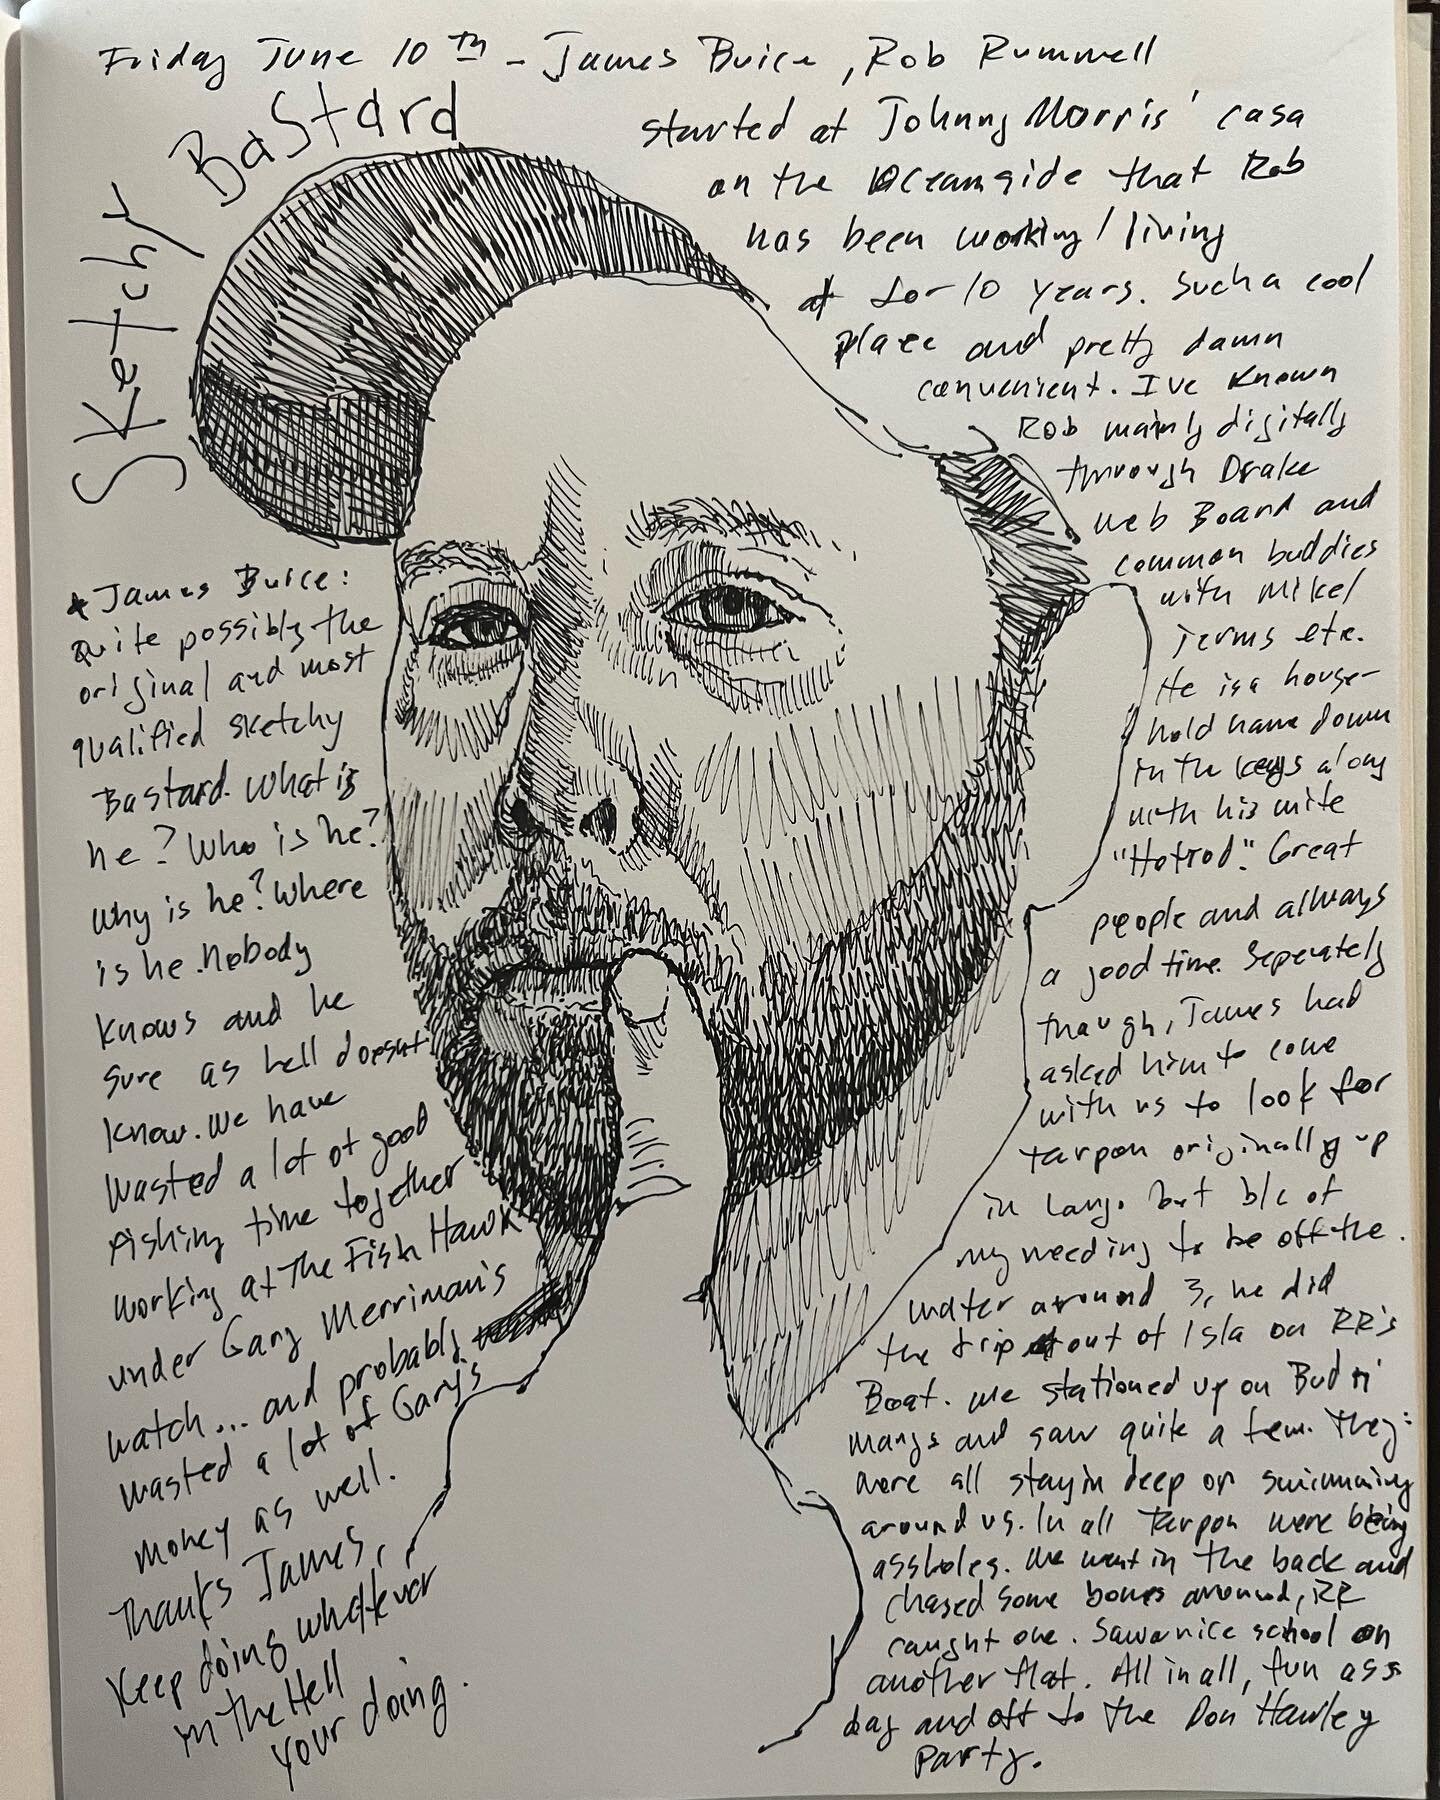 Friday June 10th - James Buice, Rob Rummell
Sketchy Bastard
started at Johnny Morris' casa
on the Oceanside that Rob
has been working/living
at for 10 years. Such a cool
place and pretty damn
convenient. I've known
Rob mainly digitally
through Drake
Web Board and
common buddies
with Mikel
Terms etc.
He is a house-
hold name down
in the keys along
with his wife
"Hotrod." Great
people and always
a good time. Seperately
though, James had
asked him to come
with us to look for
tarpon originally up
in Largo but b/c of
my needing to be off the
water around 3, he did
the trip out of Isla on RR's
Boat. We stationed up on Bud n'
Marys and saw quite a few. They
were all stayin deep or swimming
around us. In all Tarpon were being
assholes. We went in the back and
chased some bones around, RR
caught one. Saw a nice school on
another flat. All in all, fun ass
day and off to the Don Hawley
Party.
* James Buice:
Quite possibly the
original and most
qualified sketchy
Bastard. What is
he? Who is he?
Why is he? Where
is he. Nobody
knows and he
sure as hell doesnt
know. We have
wasted a lot of good
fishing time together
working at The Fish Hawk
under Gary Merriman's
watch... and probably
wasted a lot of Gary's
money as well.
Thanks James,
Keep doing whatever
in the Hell
your doing.